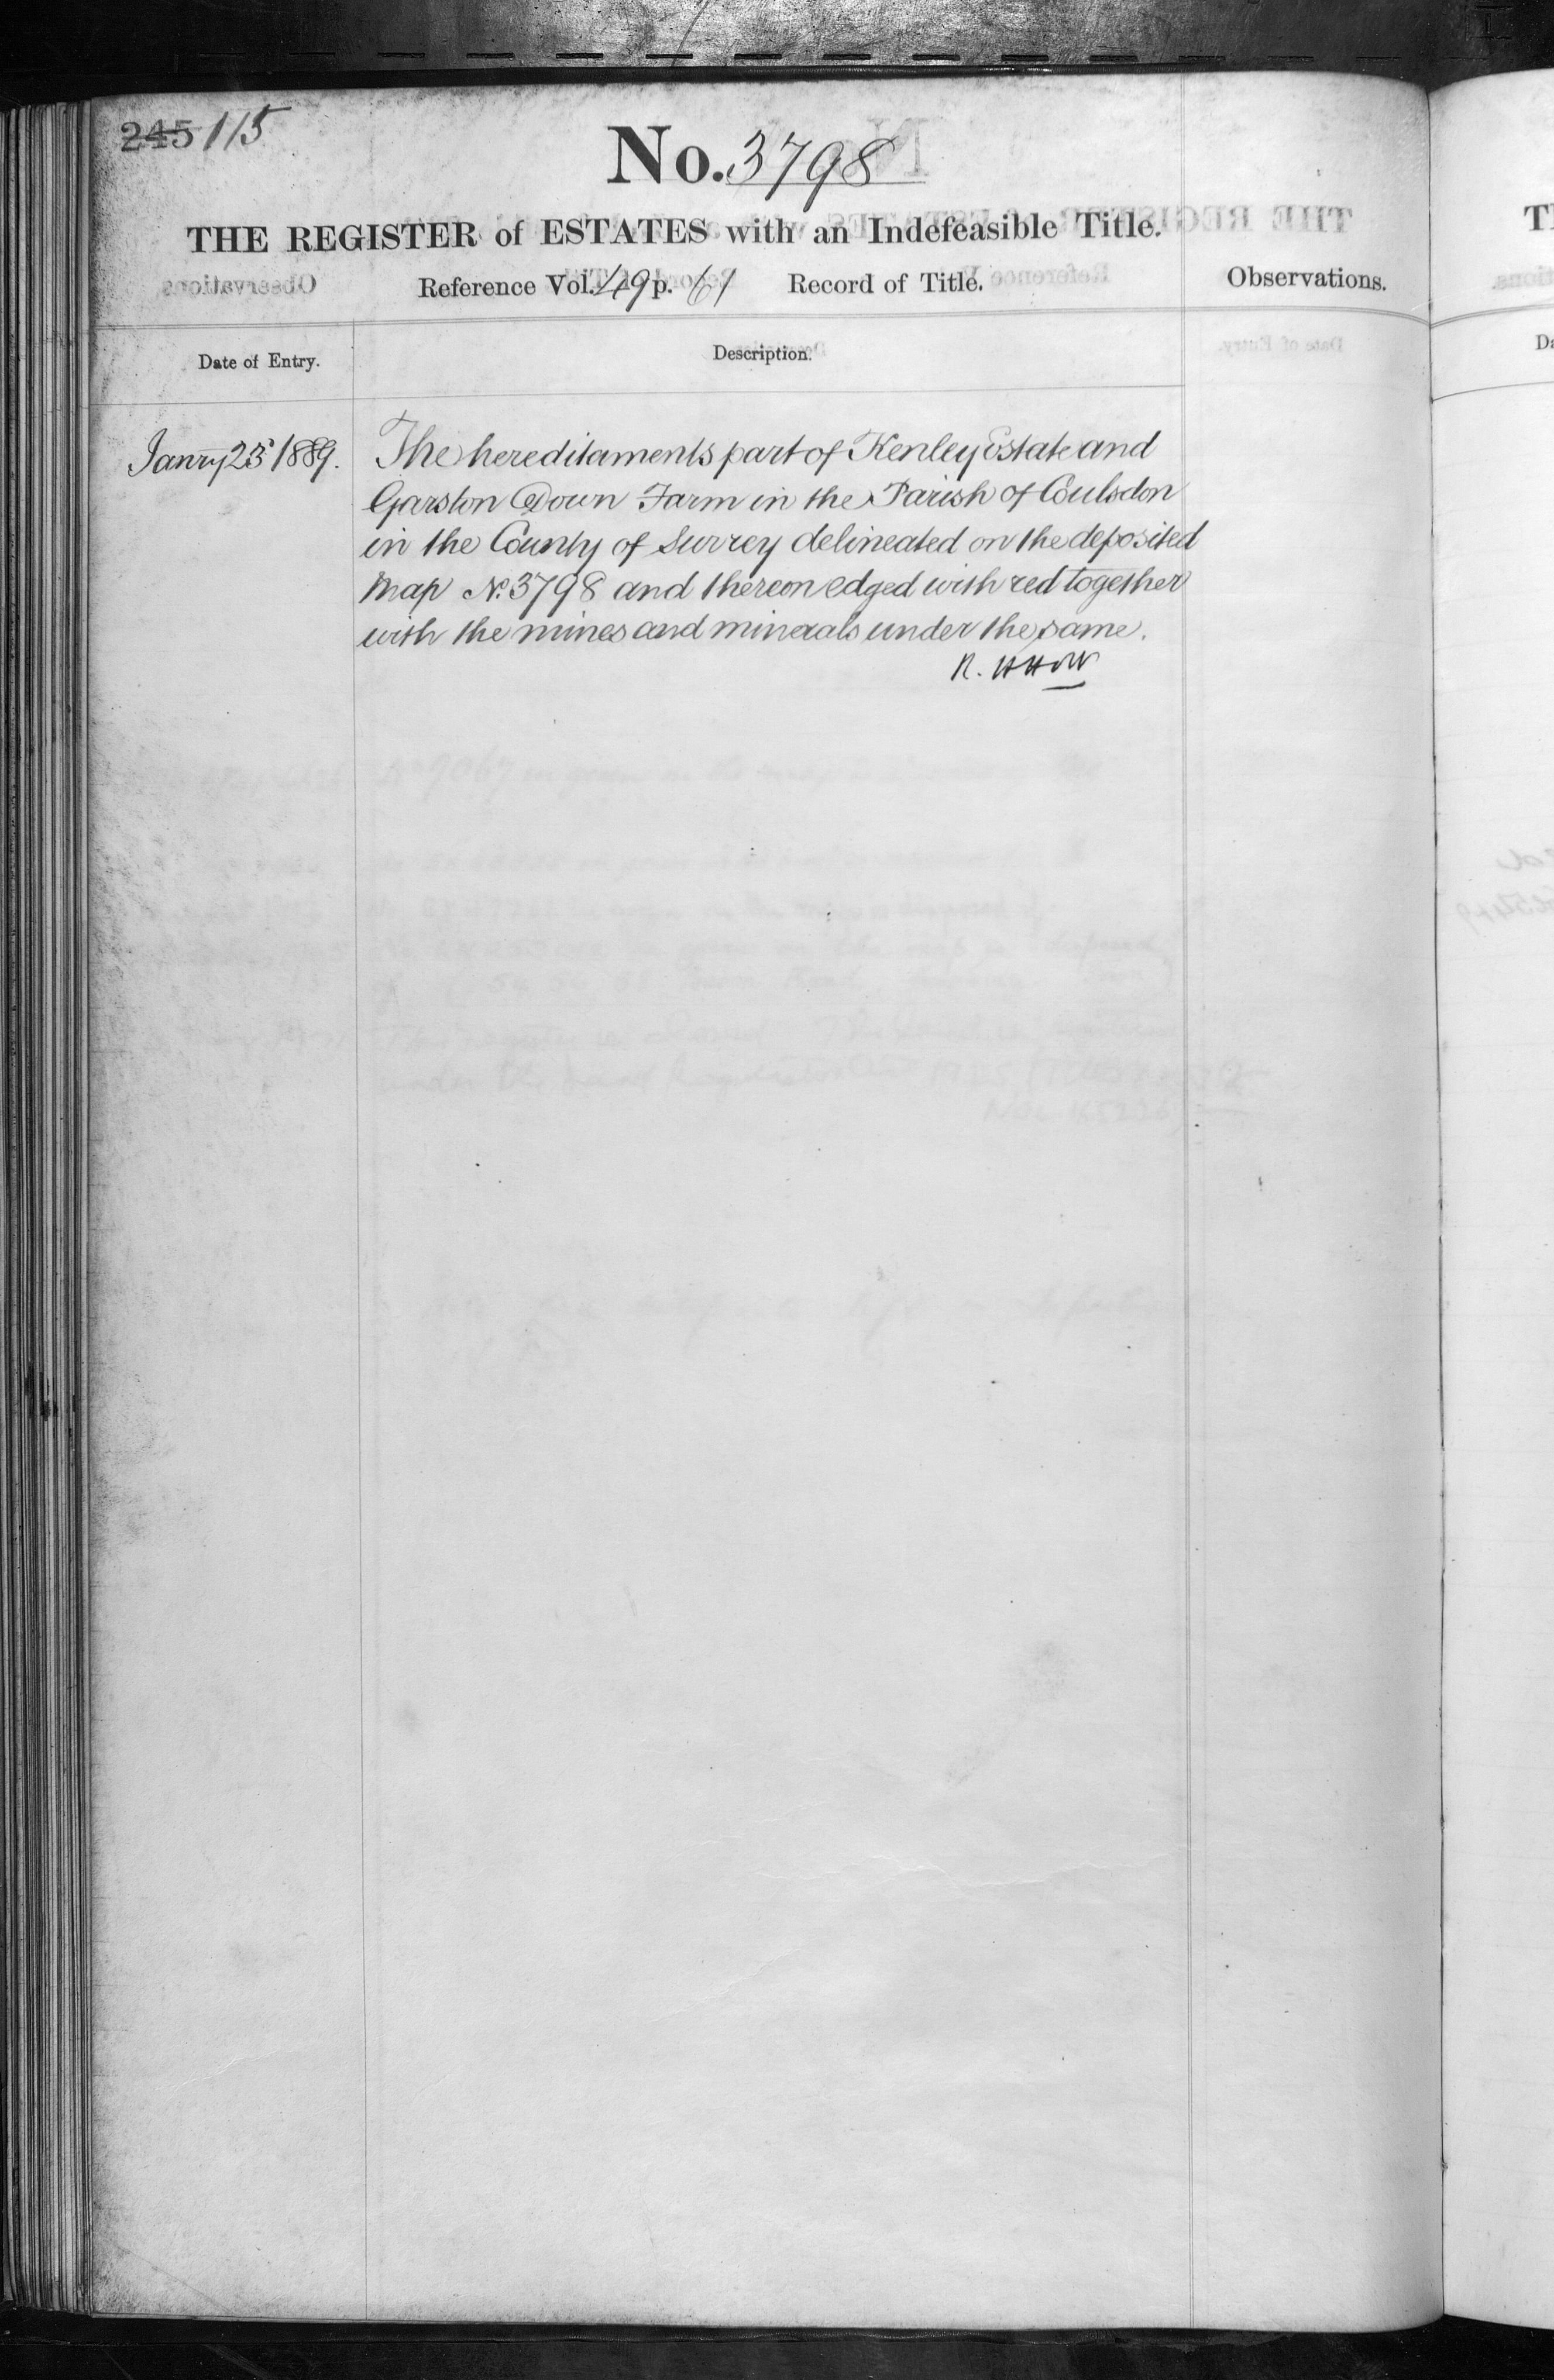 245 115
No. 3798
THE REGISTER of ESTATES with an Indefeasible Title.
Reference Vol. 49 p. 61 Record of Title. Observations.
Date of Entry. Description.
Janry 23 1889. The hereditaments part of Kenley Estate and
Garston Down Farm in the Parish of Coulsdon
in the County of Surrey delineated on the deposited
Map No. 3798 and thereon edged with red together
with the mines and minerals under the same.
R.